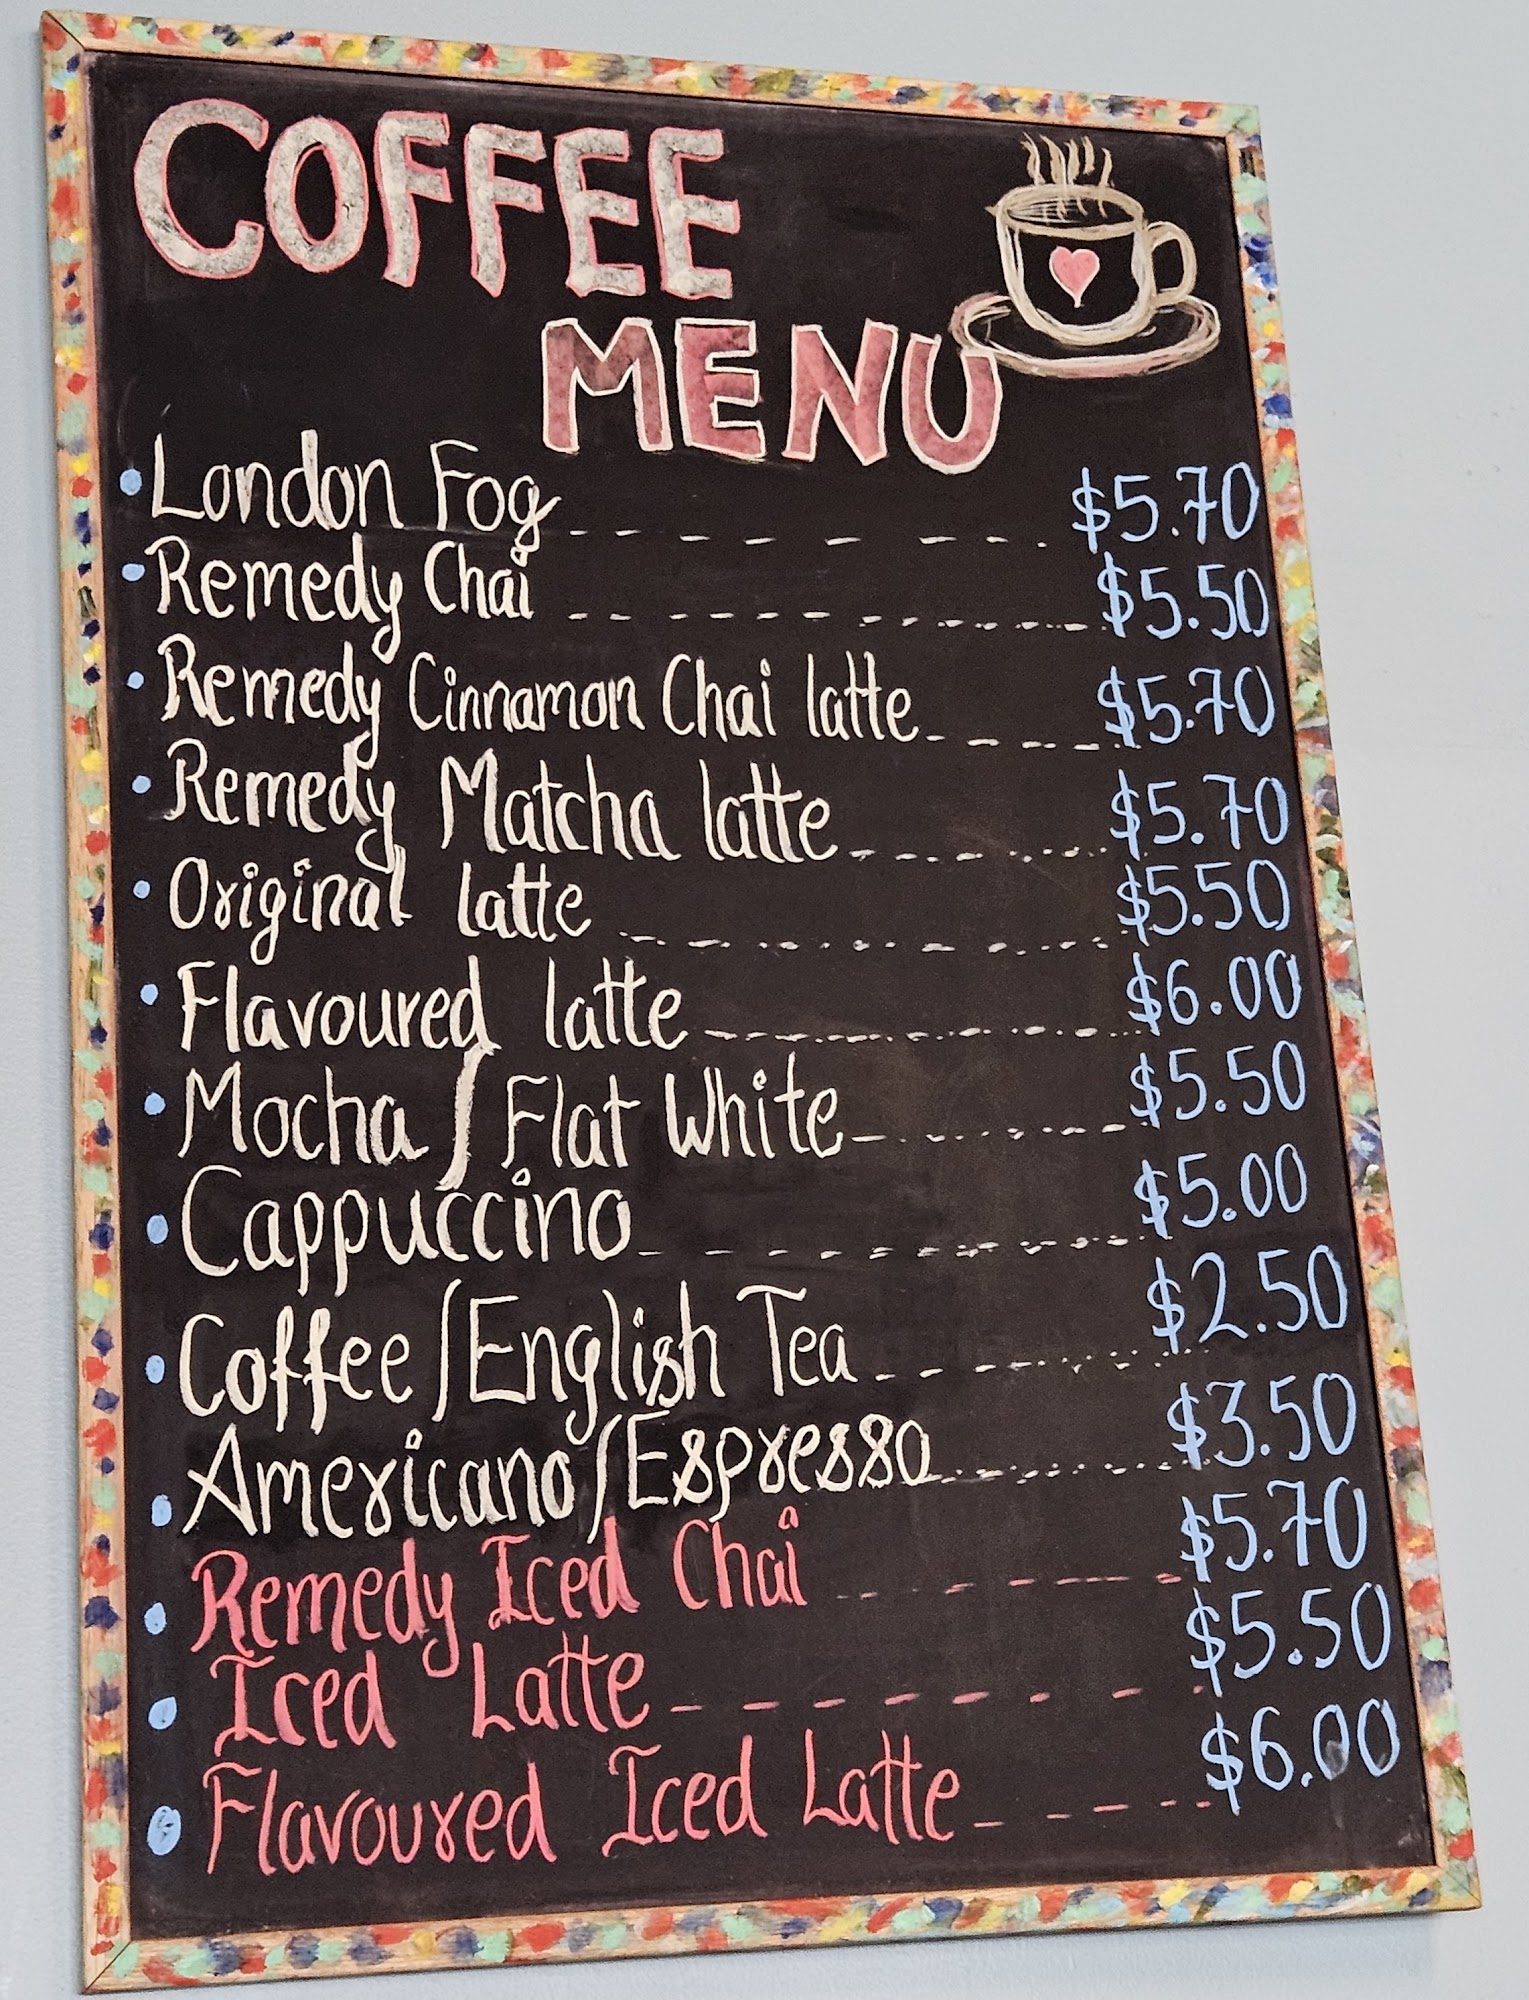 COFFEE
MENU
London Fog $5.70
Remedy Chai $5.50
Remedy Cinnamon Chai latte $5.70
Remedy Matcha latte $5.70
Original latte $5.50
Flavoured latte $6.00
Mocha / Flat White $5.50
Cappuccino $5.00
Coffee/English Tea $2.50
Americano/Espresso $3.50
Remedy Iced Chai $5.70
Iced Latte $5.50
Flavoured Iced Latte $6.00